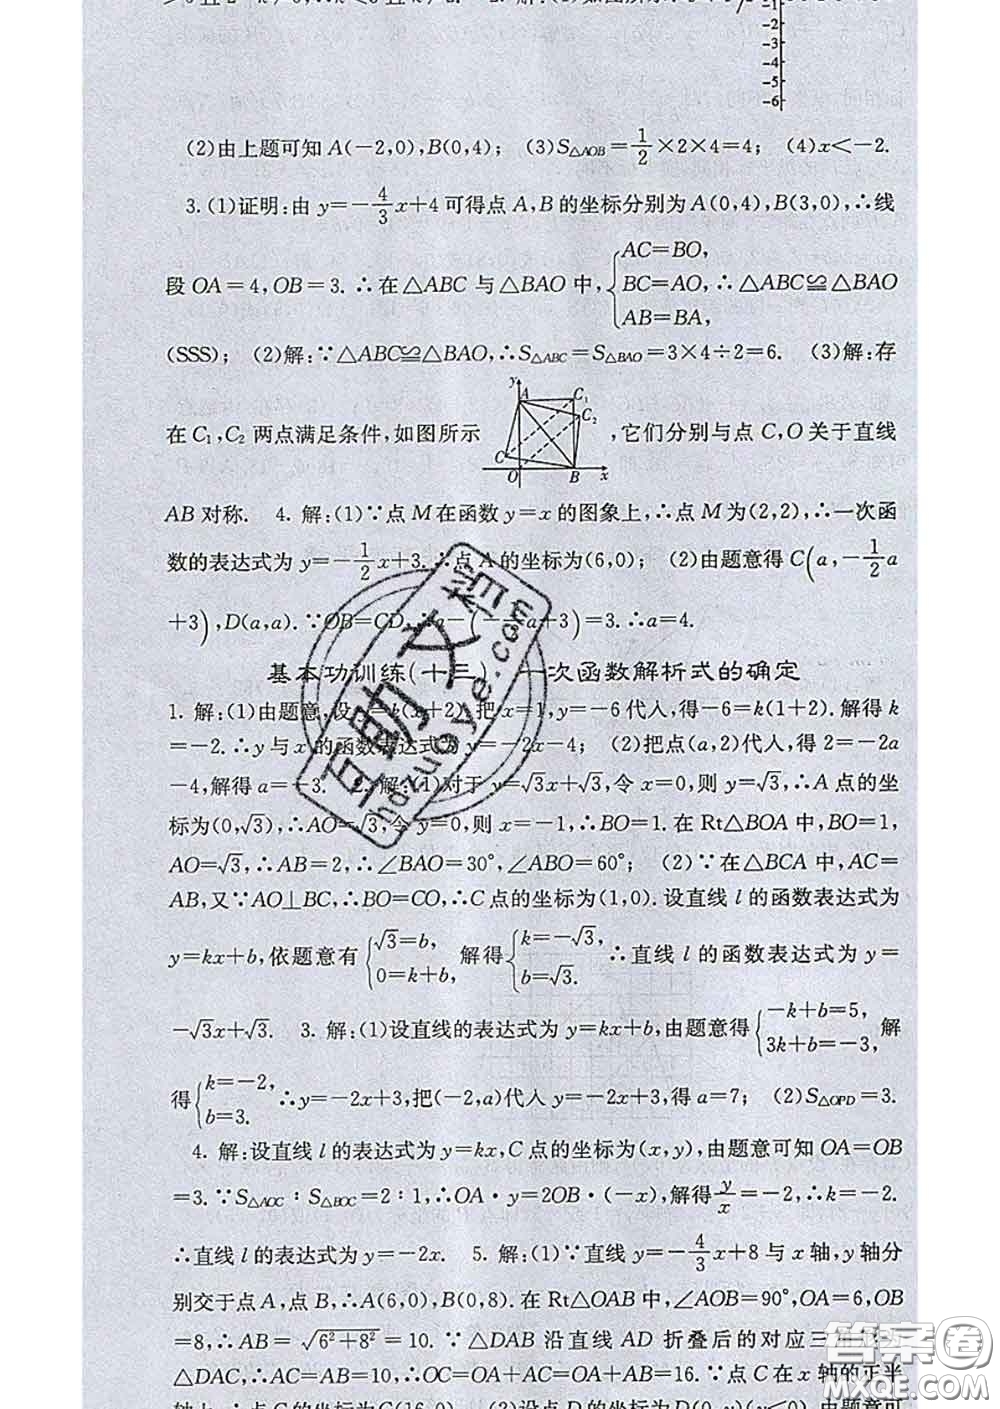 -1
-2
-3
-4
-5
-6
(2)由上题可知 A(-2,0),B(0,4); (3)S△AOB=1/2×2×4=4; (4)x<-2.
3.(1)证明:由 y=-4/3x+4 可得点 A,B 的坐标分别为 A(0,4),B(3,0),∴线
段 OA=4,OB=3. ∴在△ABC 与△BAO 中,{AC=BO, BC=AO, AB=BA, ∴△ABC≌△BAO
(SSS); (2)解:∵△ABC≌△BAO,∴S△ABC=S△BAO=3×4÷2=6. (3)解:存
在 C₁,C₂ 两点满足条件,如图所示 ,它们分别与点 C,O 关于直线
y A C₁ C₂ C O B x
AB 对称. 4. 解:(1)∵点 M 在函数 y=x 的图象上,∴点 M 为(2,2),∴一次函
数的表达式为 y=-1/2x+3.∴点 A 的坐标为(6,0); (2)由题意得 C(a,-1/2a
+3),D(a,a).∵OB=CD,∴a-(-1/2a+3)=3.∴a=4.
基本功训练(十三) 一次函数解析式的确定
1. 解:(1)由题意,设 y=k(x+2),把 x=1,y=-6代人,得-6=k(1+2).解得 k
=-2.∴y 与 x 的函数表达式为 y=-2x-4; (2)把点(a,2)代人,得 2=-2a
-4,解得 a=-3. 2. 解:(1)对于 y=√3x+√3,令 x=0,则 y=√3,∴A 点的坐
标为(0,√3),∴AO=√3,令 y=0,则 x=-1,∴BO=1. 在 Rt△BOA 中,BO=1,
AO=√3,∴AB=2,∴∠BAO=30°,∠ABO=60°; (2)∵在△BCA 中,AC=
AB,又∵AO⊥BC,∴BO=CO,∴C 点的坐标为(1,0).设直线 l 的函数表达式为
y=kx+b,依题意有{√3=b, 0=k+b, 解得{k=-√3, b=√3. ∴直线 l 的函数表达式为 y=
-√3x+√3. 3. 解:(1)设直线的表达式为 y=kx+b,由题意得{-k+b=5, 3k+b=-3, 解
得{k=-2, b=3. ∴y=-2x+3,把(-2,a)代人 y=-2x+3,得 a=7; (2)S△OPD=3.
4. 解:设直线 l 的表达式为 y=kx,C 点的坐标为(x,y),由题意可知 OA=OB
=3.∵S△AOC∶S△BOC=2∶1,∴OA·y=2OB·(-x),解得y/x=-2,∴k=-2.
∴直线 l 的表达式为 y=-2x. 5. 解:(1)∵直线 y=-4/3x+8 与 x 轴,y 轴分
别交于点 A,点 B,∴A(6,0),B(0,8).在 Rt△OAB 中,∠AOB=90°,OA=6,OB
=8,∴AB=√6²+8²=10. ∵△DAB 沿直线 AD 折叠后的对应三角形
△DAC,∴AC=AB=10,∴OC=OA+AC=OA+AB=16.∵点 C 在 x 轴的正半
互助文档
hdzuoye.com
答案圈
MXQE.COM